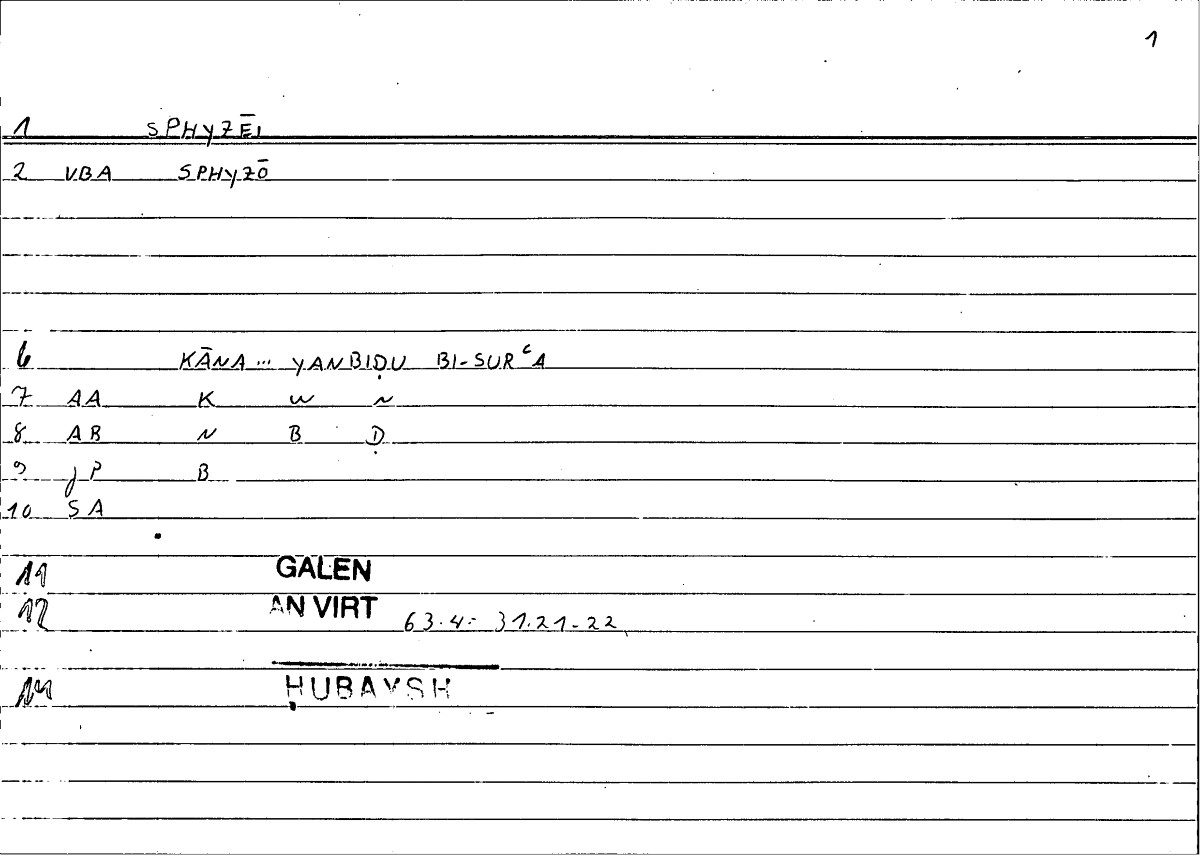 1
1 SPHYZĒI
2 VBA SPHYZŌ
6 KĀNA... YANBIḌU BI-SURʿA
7 AA K W N
8 AB N B Ḍ
9 JP B
10 SA
11 GALEN
12 AN VIRT 63.4.- 31.21-22
14 ḤUBAYSH